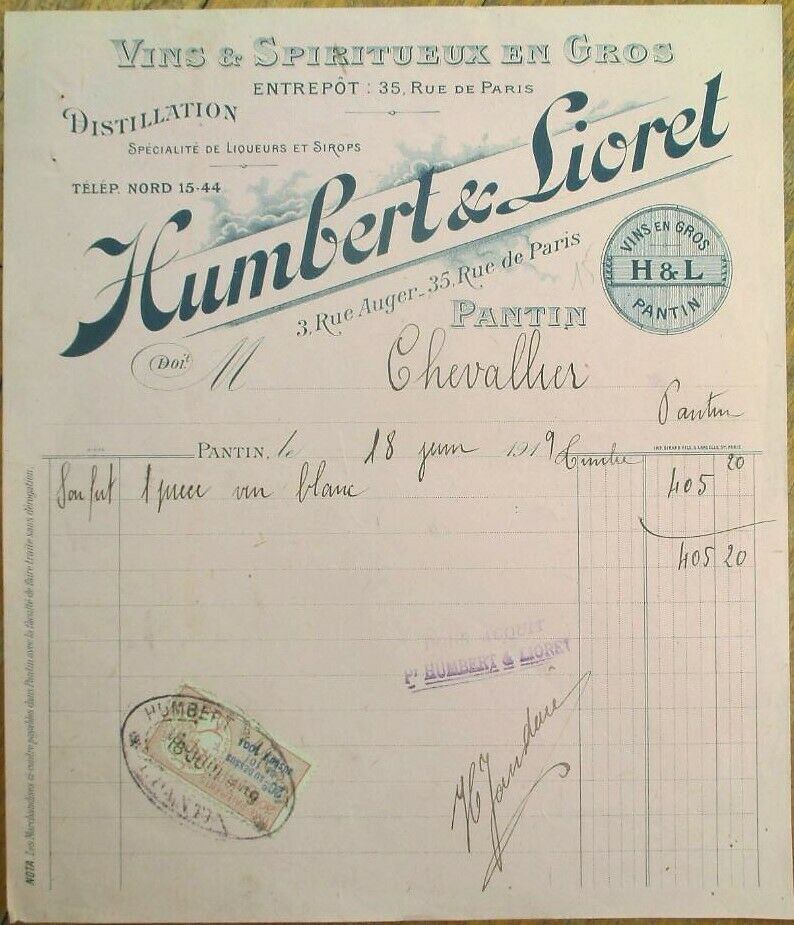 VINS & SPIRITUEUX EN GROS
ENTREPÔT : 35, RUE DE PARIS
DISTILLATION
SPÉCIALITÉ DE LIQUEURS ET SIROPS
TÉLÉP. NORD 15-44
Humbert & Lioret
3, Rue Auger_35, Rue de Paris
PANTIN
VINS EN GROS
H & L
PANTIN
Doit M Chevallier
Pantin
PANTIN, le 18 juin 1919
Timbre 20
1 piece vin blanc 405
405 20
POUR ACQUIT
Pr HUMBERT & LIORET
HUMBERT
NOTA Les Marchandises ci-contre payables dans Pantin avec la faculté de faire traite sans dérogation.